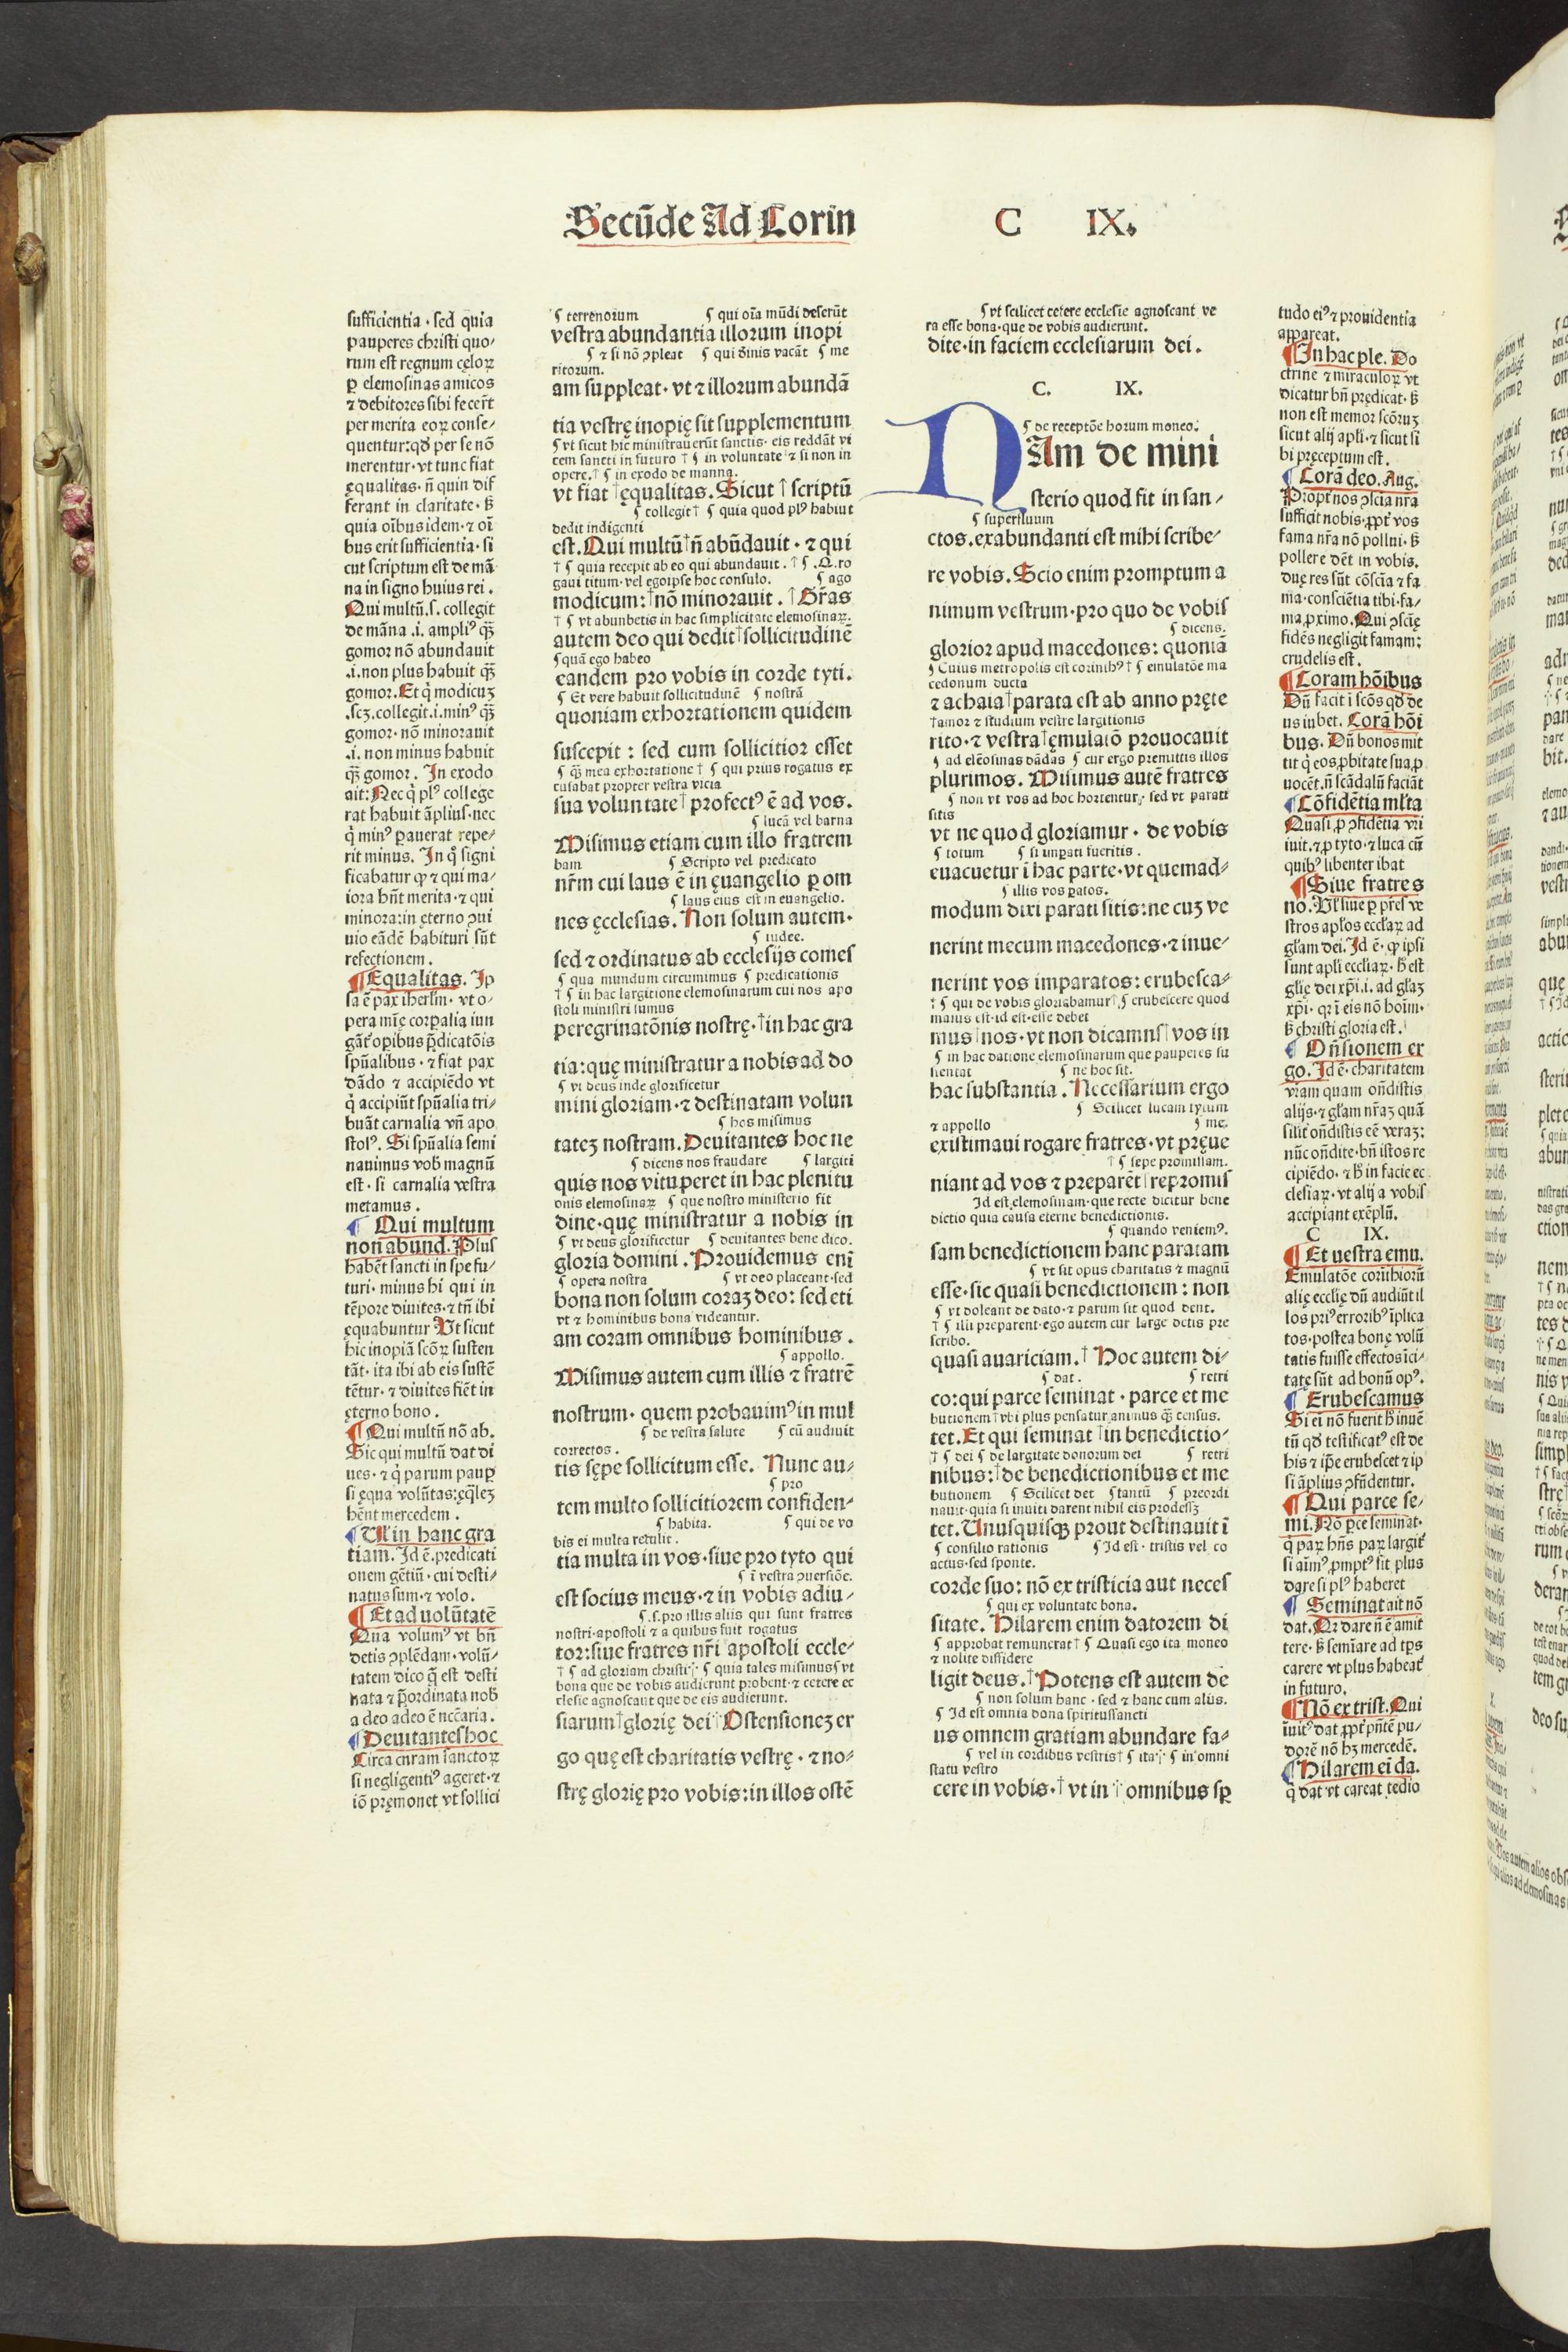 Secūde Ad Corin C IX.
sufficientia · sed quia
pauperes christi quo/
rum est regnum cęloꝝ
ꝑ elemosinas amicos
⁊ debitores sibi fecerūt
per merita eoꝝ conse/
quentur: qđ per se nō
merentur · vt tunc fiat
ęqualitas · n̄ quin dif
ferant in claritate · ß
quia oībus idem · ⁊ oī
bus erit sufficientia · si
cut scriptum est de mā
na in signo huius rei .
Qui multū .s. collegit
de māna .i. ampliꝰ qß
gomor nō abundauit
.i. non plus habuit qß
gomor. Et q̇ modicuʒ
.scʒ. collegit .i. minꝰ qß
gomor · nō minorauit
.i. non minus habuit
qß gomor . In exodo
ait: Nec q̇ plꝰ college
rat habuit āpliusꝰ · nec
q̇ minꝰ ꝑauerat repe/
rit minus. In q̊ signi
ficabatur ꝙ ⁊ qui ma/
iora hn̄t merita · ⁊ qui
minora: in ęterno ꝯui
uio eādē habituri sūt
refectionem .
¶ Equalitas. Ip
sa ē pax iherl̄m · vt o/
pera mīę corꝑalia iun
gāt oꝑibus p̄dicatōis
spūalibus · ⁊ fiat pax
dādo ⁊ accipiēdo vt
q̇ accipiūt spūalia tri/
buāt carnalia vn̄ apo
stolꝰ. Si spūalia semi
nauimus vob̄ magnū
est · si carnalia vestra
metamus .
¶ Qui multum
non abund. Plus
habēt sancti in spe fu/
turi · minus hi qui in
tēpore diuites · ⁊ tn̄ ibi
ęquabuntur Vt sicut
hic inopiā scōꝝ susten
tāt · ita ibi ab eis sustē
tētur · ⁊ diuites fiēt in
ęterno bono .
¶ Qui multū nō ab.
Sic qui multū dat di
ues · ⁊ q̇ parum pauꝑ
si ęqua volūtas: ęq̄leʒ
hēnt mercedem .
¶ Ul̓ in hanc gra
tiam. Id ē. predicati
onem gētiū · cui desti/
natus sum · ⁊ volo.
¶ Et ad uolūtatē
Qua volumꝰ vt bn̄
detis ꝯplēdam · volū/
tatem dico q̄ est desti
nata ⁊ p̄ordinata nob̄
a deo adeo ē nccāria .
¶ Deuitantes hoc
Circa curam sanctoꝝ
si negligentiꝰ ageret · ⁊
iō pręmonet vt sollici
¶ terrenorum ¶ qui oīa mūdi deserūt
vestra abundantia illorum inopi
¶ ⁊ si nō ꝯpleat ¶ qui diuinis vacāt ¶ me
ritorum.
am suppleat · vt ⁊ illorum abundā
tia vestrę inopię sit supplementum
¶ vt sicut hic ministrauerūt sanctis · eis reddāt vi
cem sancti in futuro † ¶ in voluntate ⁊ si non in
opere. † ¶ in exodo de manna.
vt fiat † ęqualitas. Sicut † scriptū
¶ collegit † ¶ quia quod plꝰ habiut
dedit indigenti
est. Qui multū † n̄ abūdauit · ⁊ qui
† ¶ quia recepit ab eo qui abundauit. † ¶ .Q. ro
gaui titum · vel egoipse hoc consulo. ¶ ago
modicum: † nō minorauit . † Gr̄as
† ¶ vt abundetis in hac simplicitate elemosinaꝝ.
autem deo qui dedit † sollicitudinē
¶ quā ego habeo
eandem pro vobis in corde tyti.
¶ Et vere habuit sollicitudinē ¶ nostrā
quoniam exhortationem quidem
suscepit : sed cum sollicitior esset
¶ qß mea exhortatione † ¶ qui prius rogatus ex
cusabat propter vestra vicia
sua voluntate † profectꝰ ē ad vos.
¶ lucā vel barna
Misimus etiam cum illo fratrem
bam ¶ Scripto vel predicato
nr̄m cui laus ē in ęuangelio ꝑ om
¶ laus eius est in euangelio.
nes ęcclesias. Non solum autem ·
¶ iudee.
sed ⁊ ordinatus ab ecclesijs comes
¶ qua mundum circuimus ¶ predicationis
† ¶ in hac largitione elemosinarum cui nos apo
stoli ministri sumus
peregrinatōnis nostrę · † in hac gra
tia: quę ministratur a nobis ad do
¶ vt deus inde glorificetur
mini gloriam · ⁊ destinatam volun
¶ hos misimus
tateʒ nostram. Deuitantes hoc ne
¶ dicens nos fraudare ¶ largiti
quis nos vituperet in hac plenitu
onis elemosinaꝝ ¶ que nostro ministerio fit
dine · quę ministratur a nobis in
¶ vt deus glorificetur ¶ deuitantes bene dico.
gloria domini . Prouidemus enī
¶ opera nostra ¶ vt deo placeant · sed
bona non solum coraʒ deo: sed eti
vt ⁊ hominibus bona videantur.
am coram omnibus hominibus .
¶ appollo.
Misimus autem cum illis ⁊ fratrē
nostrum · quem probauimꝰ in mul
¶ de vestra salute ¶ cū audiuit
correctos .
tis sępe sollicitum esse. Nunc au/
¶ pro
tem multo sollicitiorem confiden/
¶ habita. ¶ qui de vo
bis ei multa retulit .
tia multa in vos · siue pro tyto qui
¶ ī vestra ꝯuersiōe.
est socius meus · ⁊ in vobis adiu/
¶ .s. pro illis aliis qui sunt fratres
nostri · apostoli ⁊ a quibus fuit rogatus
tor: siue fratres nr̄i apostoli eccle/
† ¶ ad gloriam christi ¶ quia tales misimus vt
bona que de vobis audierunt probent · ⁊ cetere ec
clesie agnoscant que de eis audierunt.
siarum † glorię dei † Ostensioneʒ er
go quę est charitatis vestrę · ⁊ no/
strę glorię pro vobis: in illos ostē
¶ vt scilicet cetere ecclesie agnoscant ve
ra esse bona · que de vobis audierunt.
dite · in faciem ecclesiarum dei .
C. IX.
¶ de receptōe horum moneo.
NAm de mini
sterio quod fit in san/
¶ superfluum
ctos. exabundanti est mihi scribe/
re vobis. Scio enim promptum a
nimum vestrum · pro quo de vobis
¶ dicens.
glorior apud macedones: quoniā
¶ Cuius metropolis est corinthꝰ † ¶ emulatōe ma
cedonum ducta
⁊ achaia † parata est ab anno pręte
† amor ⁊ studium vestre largitionis
rito · ⁊ vestra † ęmulatō prouocauit
¶ ad elēosinas dādas ¶ cur ergo premittis illos
plurimos. Misimus autē fratres
¶ non vt vos ad hoc hortentur · sed vt parati
sitis
vt ne quod gloriamur · de vobis
¶ totum ¶ si imparati fueritis .
euacuetur ī hac parte · vt quemad/
¶ illis vos ꝑatos.
modum dixi parati sitis: ne cuʒ ve
nerint mecum macedones · ⁊ inue/
nerint vos imparatos: erubesca/
† ¶ qui de vobis gloriabamur † ¶ erubescere quod
maius est · id est · esse debet
mus † nos · vt non dicamus † vos in
¶ in hac datione elemosinarum que pauperes su
stentat ¶ ne hoc sit.
hac substantia . Necessarium ergo
¶ Scilicet lucam tytum
⁊ appollo ¶ me.
existimaui rogare fratres · vt pręue
† ¶ sepe promissam.
niant ad vos ⁊ preparēt † repromis
Id est elemosinam · que recte dicitur bene
dictio quia causa eterne benedictionis.
¶ quando veniemꝰ.
sam benedictionem hanc paratam
¶ vt sit opus charitatis ⁊ magnū
esse · sic quasi benedictionem : non
¶ vt doleant de dato · ⁊ parum sit quod dent.
† ¶ illi preparent · ego autem cur large detis pre
scribo.
quasi auariciam. † Hoc autem di/
¶ dat . ¶ retri
co: qui parce seminat · parce et me
butionem † vbi plus pensatur animus qß census.
tet. Et qui seminat † in benedictio/
† ¶ dei ¶ de largitate donorum dei ¶ retri
nibus: † de benedictionibus et me
butionem ¶ Scilicet det ¶ tantū ¶ preordi
nauit · quia si inuiti darent nihil eis prodesset
tet. Unusquisqꝫ prout destinauit ī
¶ consilio rationis ¶ Id est · tristis vel co
actus · sed sponte.
corde suo: nō ex tristicia aut neces
¶ qui ex voluntate bona.
sitate. Hilarem enim datorem di
¶ approbat remunerat † ¶ Quasi ego ita moneo
⁊ nolite diffidere
ligit deus. † Potens est autem de
¶ non solum hanc · sed ⁊ hanc cum aliis.
¶ Id est omnia dona spiritussancti
us omnem gratiam abundare fa/
¶ vel in cordibus vestris † ¶ ita ¶ in omni
statu vestro
cere in vobis. † vt in † omnibus sꝑ
tudo eiꝰ ⁊ prouidentia
appareat.
¶ In hac ple. Do
ctrine ⁊ miraculoꝝ vt
dicatur bn̄ prędicat · ß
non est memor scōruʒ
sicut alij apl̄i · ⁊ sicut si
bi pręceptum est .
¶ Corā deo. Aug.
Propt̓ nos ꝯscia nr̄a
sufficit nobis · ꝓpt̓ vos
fama nr̄a nō pollui · ß
pollere dēt in vobis.
Duę res sūt cōscīa ⁊ fa
ma · consciētia tibi · fa/
ma, ꝓximo. Qui ꝯscīę
fidēs negligit famam:
crudelis est .
¶ Coram hōibus
Dū facit ī scōs qđ de
us iubet. Corā hōi
bus. Dū bonos mit
tit q̇ eos, ꝓbitate sua, ꝓ
uocēt · n̄ scādalū faciāt
¶ Cōfidētia ml̄ta
Quasi, ꝓ ꝯfidētia vr̄i
iuit. ⁊, ꝓ tyto · ⁊ luca cū
quibꝰ libenter ibat
¶ Siue fratres
no. Ul̓ siue ꝑ pr̄es ve
stros apl̄os eccl̄aꝝ ad
gl̄am dei. Id ē · ꝙ ipsi
sunt apl̄i eccliaꝝ · h̄ est
gl̄ię dei xp̄i .i. ad gl̄aʒ
xp̄i · qr ī eis nō hoīm ·
ß christi gloria est .
¶ Oñsionem er
go. Id ē · charitatem
vr̄am quam oñdistis
alijs · ⁊ gl̄am nr̄aʒ quā
silit̓ oñdistis eē veraʒ:
nūc oñdite · bn̄ istos re
cipiēdo · ⁊ h̄ in facie ec
clesiaꝝ · vt alij a vobis
accipiant exēplū.
C IX.
¶ Et uestra emu.
Emulatōe corīthioꝝ
alię ecclię dū audiūt il
los priꝰ erroribꝰ īplica
tos · postea bonę volū
tatis fuisse effectos īci/
tatę sūt ad bonū opꝰ .
¶ Erubescamus
Si ei nō fuerit h̄ inuē
tū qđ testificatꝰ est de
his ⁊ ip̄e erubescet ⁊ ip
si āplius ꝯfūdentur.
¶ Qui parce se/
mi. Nō ꝑce seminat ·
q̇ paꝝ hn̄s paꝝ largit̓
si aīmꝰ, ꝓmptꝰ sit plus
dare si plꝰ haberet
¶ Seminat ait nō
dat. Qr dare n̄ ē amit
tere · ß semīare ad tp̄s
carere vt plus habeat̓
in futuro.
¶ Nō ex trist. Qui
īuitꝰ dat, ꝓpt̓ pn̄tē pu/
dorē nō hʒ mercedē.
¶ Hilarem ei da.
q̇ dat vt careat tędio